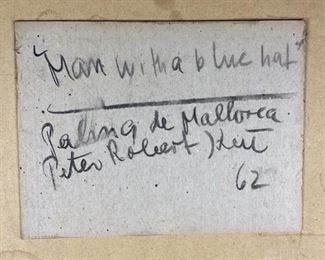 "Man with a blue hat"
Palma de Mallorca
Peter Robert
62